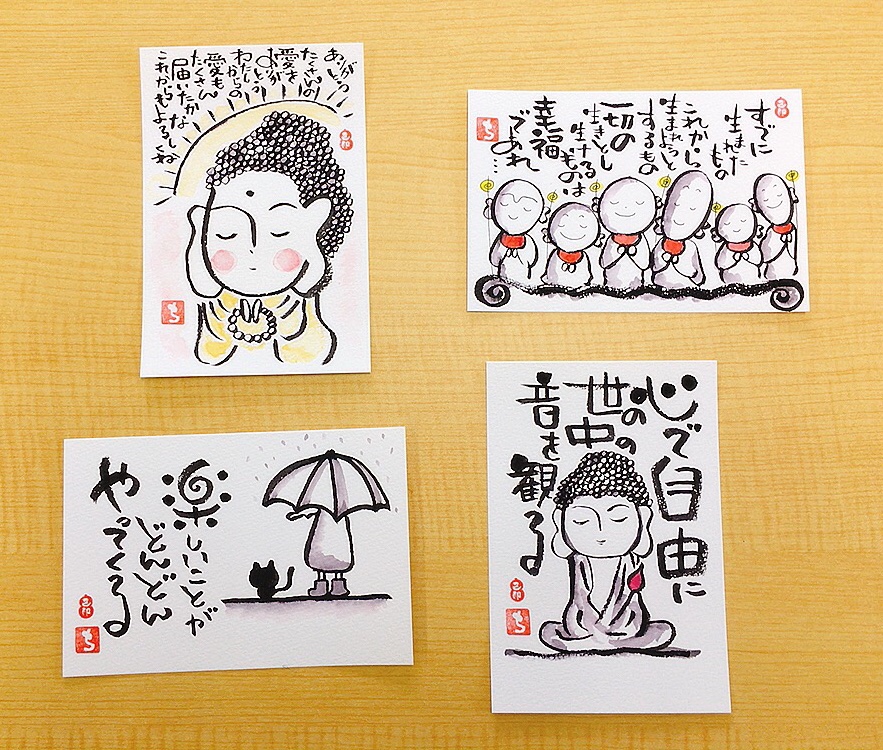 たくさんの
愛を
ありがとう
わたし
からの
愛も
たくさん
届いたかな
これからもよろしくね
ち
すでに
生まれた
もの
これから
生まれようと
するもの
一切の
生きとし
生ける
ものは
幸福
であれ…
ち
楽しいことが
どんどん
やってくる
ち
心で自由に
世の中の
音を観る
ち